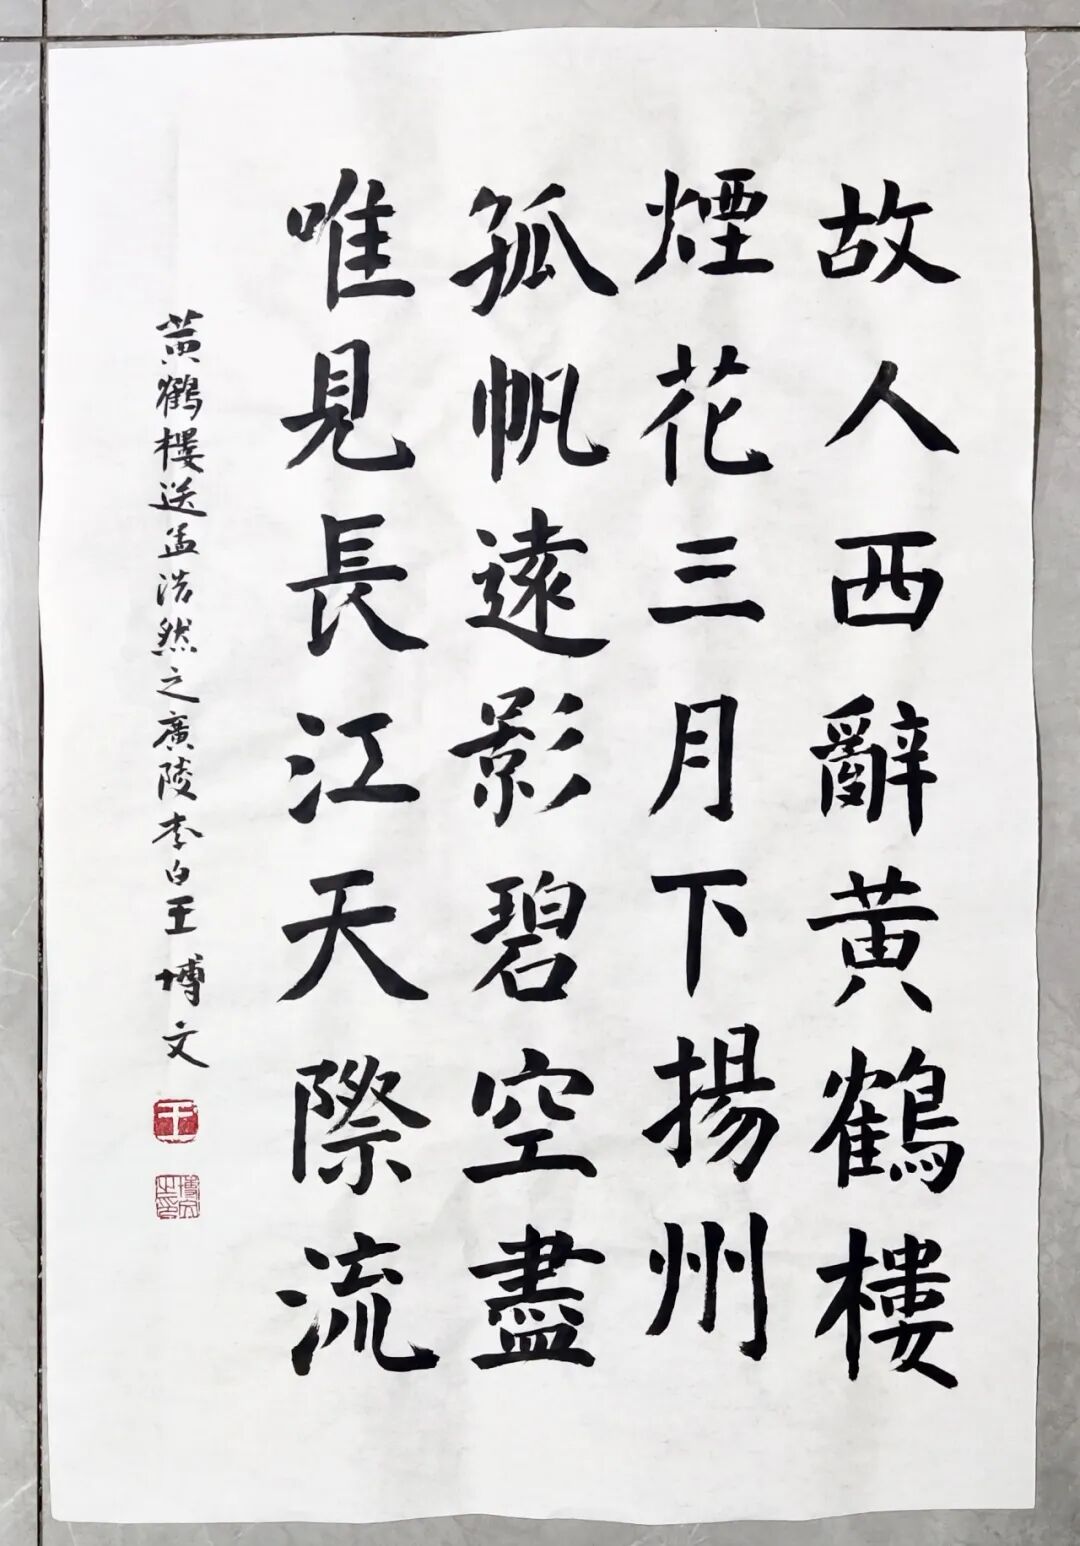 故人西辭黃鶴樓
煙花三月下揚州
孤帆遠影碧空盡
唯見長江天際流
黃鶴樓送孟浩然之廣陵李白王博文
王